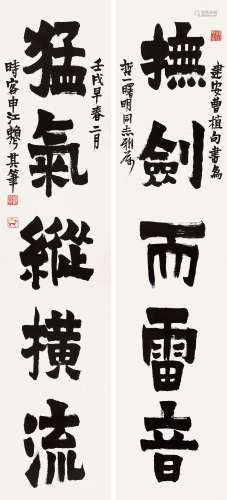 建安曹植句書為
撫劍而雷音
哲一曙明同志雅屬
壬戌早春二月
猛氣縱橫流
時客申江賴少其筆